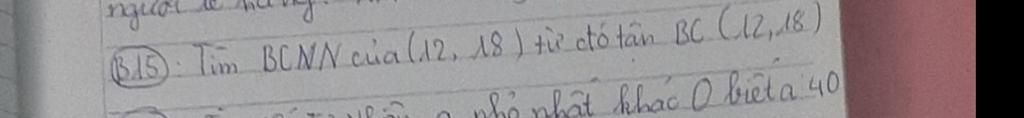 người
B15: Tìm BCNN của (12, 18) từ đó tân BC (12,18)
nhỏ nhất khác 0 biết a 40